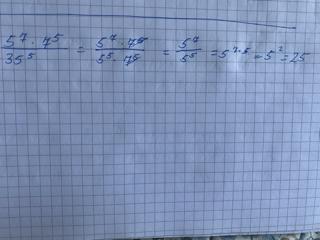 5⁷ · 7⁵ / 35⁵ = 5⁷ · 7⁵ / 5⁵ · 7⁵ = 5⁷ / 5⁵ = 5⁷⁻⁵ = 5² = 25